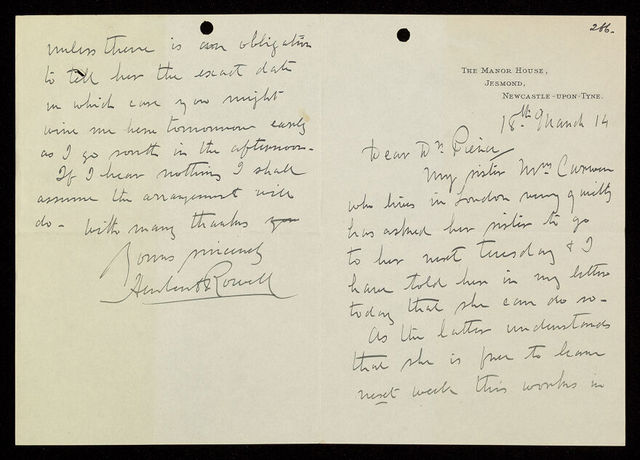 286.
THE MANOR HOUSE,
JESMOND,
NEWCASTLE-UPON-TYNE.
18th March 14
Dear Dr. Pierce
My sister Mrs Curwen
who lives in London very quietly
has asked her sister to go
to her next Tuesday & I
have told her in my letter
today that she can do so -
As the latter understands
that she is free to leave
next week this works in
unless there is an obligation
to tell her the exact date
in which case you might
wire me here tomorrow early
as I go south in the afternoon -
If I hear nothing I shall
assume the arrangement will
do - With many thanks
Yours sincerely
Herbert Rowell